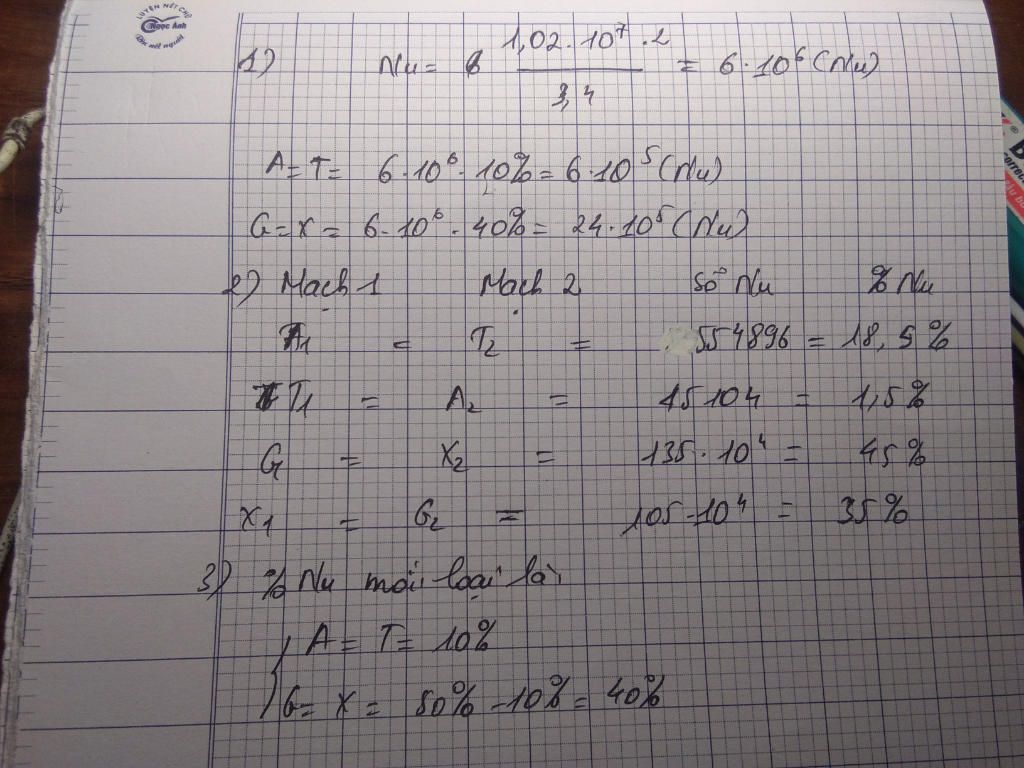 LUYỆN NÉT CHỮ
Ngọc Ánh
Rèn nết người
1) Nu = 6 1,02.10⁷.2 / 3,4 = 6.10⁶ (Nu)
A = T = 6.10⁶.10% = 6.10⁵ (Nu)
G = X = 6.10⁶.40% = 24.10⁵ (Nu)
2) Mạch 1 Mạch 2 Số Nu % Nu
A1 = T2 = 554896 = 18,5%
T1 = A2 = 45104 = 1,5%
G1 = X2 = 135.10⁴ = 45%
X1 = G2 = 105.10⁴ = 35%
3) % Nu mỗi loại là:
A = T = 10%
G = X = 50% - 10% = 40%